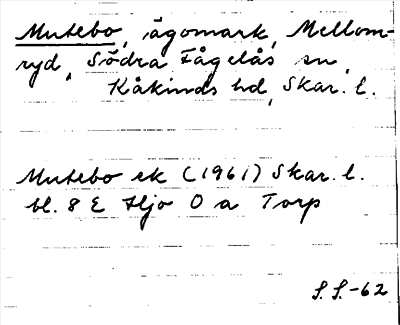 Mutebo, ägomark, Mellom-
ryd, Södra Fågelås sn,
Kåkinds hd, Skar. l.
Mutebo ek (1961) Skar. l.
bl. 8 E Hjo O a Torp
S. S.-62